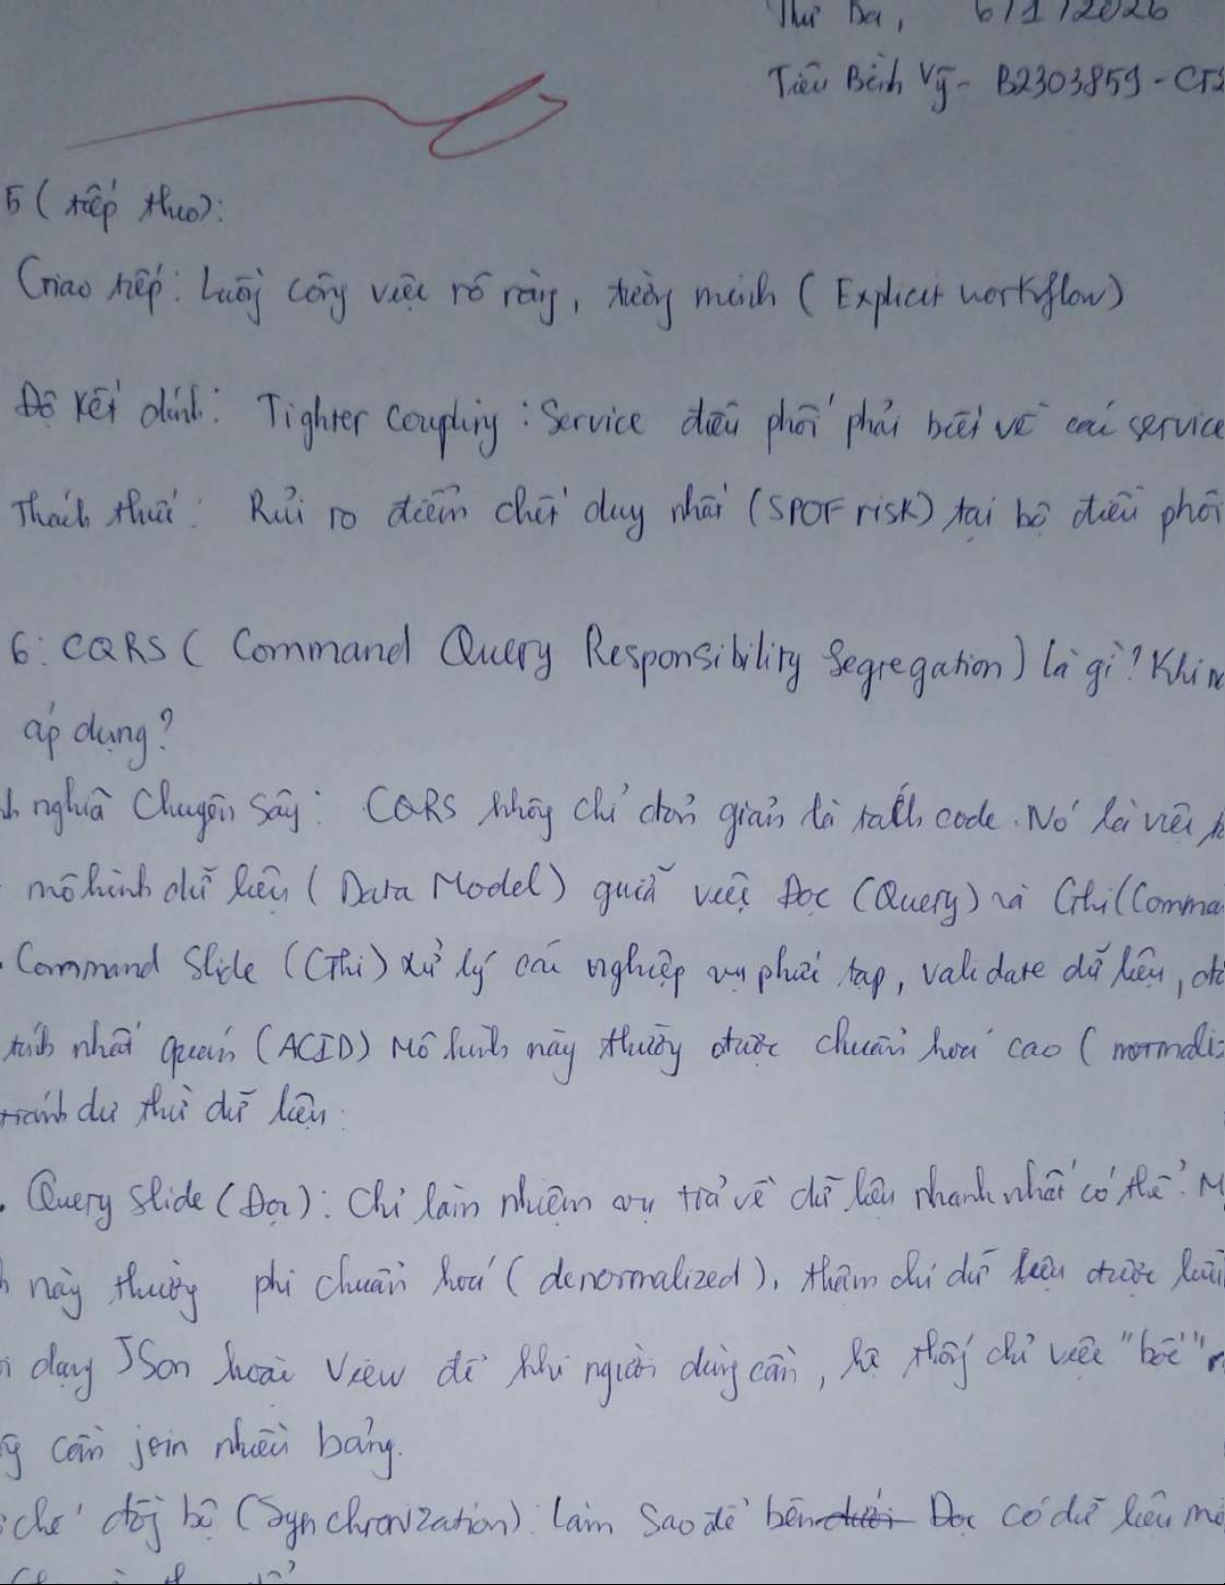 Thứ Ba, 6/1/2026
Tiêu Bình Vỹ - B2303859 - CT2
5 (tiếp theo):
Giao tiếp: Luồng công việc rõ ràng, tường minh (Explicit workflow)
Độ kết dính: Tighter Coupling: Service điều phối phải biết về các service
Thách thức: Rủi ro điểm chết duy nhất (SPOF risk) tại bộ điều phối
6: CQRS (Command Query Responsibility Segregation) là gì? Khi
áp dụng?
nghĩa Chuyên Sâu: CQRS không chỉ đơn giản là tách code. Nó là việc
mô hình dữ liệu (Data Model) giữa việc Đọc (Query) và Ghi (Comma
. Command Slide (Ghi) xử lý các nghiệp vụ phức tạp, validate dữ liệu,
tính nhất quán (ACID) Mô hình này thường được chuẩn hoá cao (normaliz
tránh dư thừa dữ liệu.
. Query Slide (Đọc): Chỉ làm nhiệm vụ trả về dữ liệu nhanh nhất có thể. M
này thường phi chuẩn hoá (denormalized), thậm chí dữ liệu được lưu
dạng JSon hoặc View để khi người dùng cần, hệ thống chỉ việc "bốc"
cần join nhiều bảng.
chế đồng bộ (Synchronization): Làm Sao để bên dưới Đọc có dữ liệu mớ